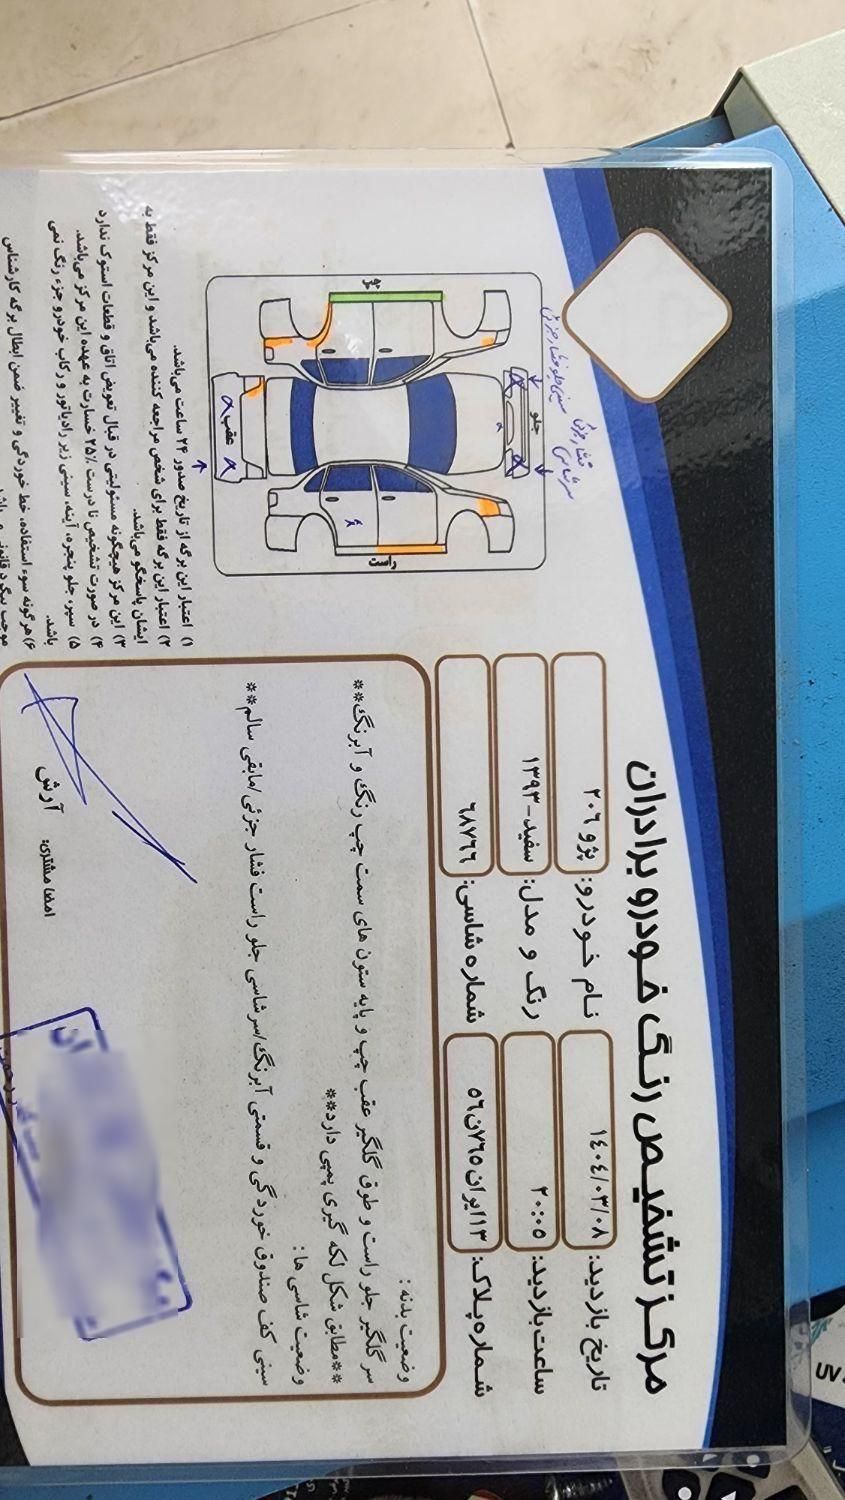 مرکز تشخیص رنگ خودرو برادران
تاریخ بازدید: ۱٤۰٤/۰۳/۰۸
نام خودرو: پژو ۲۰٦
ساعت بازدید: ۲۰:۰۵
رنگ و مدل: سفید-۱۳۹۳
شماره پلاک: ۱۳ایران۷٦۵ن۵٦
شماره شاسی: ٦۸۷٦٦
جلو
عقب
راست
وضعیت بدنه :
سر گلگیر جلو راست و طوق گلگیر عقب چپ و پایه ستون های سمت چپ رنگ و آبرنگ**
**مطابق شکل لکه گیری پمپی دارد**
وضعیت شاسی ها :
سینی کف صندوق خوردگی و قسمتی آبرنگ/سرشاسی جلو راست فشار جزئی/مابقی سالم**
آرش
امضا مشتری:
۱) اعتبار این برگه از تاریخ صدور ۲۴ ساعت می‌باشد.
۲) اعتبار این برگه فقط برای شخص مراجعه کننده می‌باشد و این مرکز فقط به
ایشان پاسخگو می‌باشد.
۳) این مرکز هیچگونه مسئولیتی در قبال تعویض اتاق و قطعات استوک ندارد
۴) در صورت تشخیص نا درست ۲۵٪ خسارت به عهده این مرکز می‌باشد.
۵) سپر، جلو پنجره، آینه، سینی زیر رادیاتور و رکاب خودرو جزء رنگ نمی
باشد.
۶) هرگونه سوء استفاده، خط خوردگی و تغییر ضمن ابطال برگه کارشناس
UV